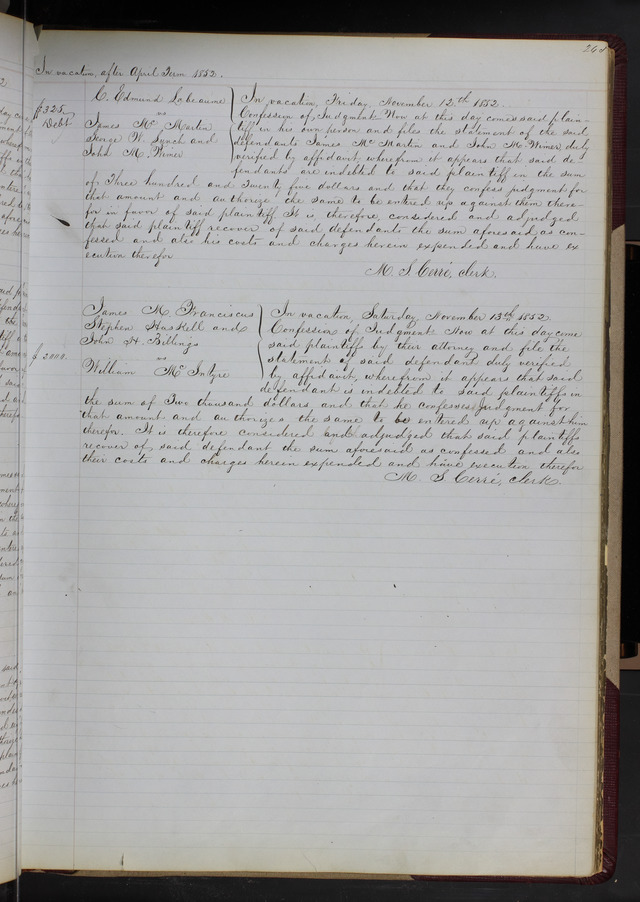 In vacation, after April Term 1852.
C. Edmund Labeaume
vs
James McMartin
George W. Lynch and
John M. Wimer
$325
Debt
In vacation, Friday November 12th 1852.
Confession of Judgment Now at this day comes said plain-
tiff in his own person and files the statement of the said
defendants James McMartin and John M. Wimer duly
verified by affidavit, wherefrom it appears that said de-
fendants are indebted to said plaintiff in the sum
of Three hundred and Twenty five dollars and that they confess judgment for
that amount and authorize the same to be entered up against them there-
for in favor of said plaintiff It is, therefore, considered and adjudged
that said plaintiff recover of said defendants the sum aforesaid as con-
fessed and also his costs and charges herein expended and have ex
ecution therefor
M. S. Cerré, clerk.
James M. Franciscus
Stephen Haskell and
John H. Billings
vs
William McIntyre
$2000.
In vacation, Saturday, November 13th 1852.
Confession of Judgment Now at this day come
said plaintiffs by their attorney and file the
statement of said defendant duly verified
by affidavit, wherefrom it appears that said
defendant is indebted to said plaintiffs in
the sum of Two thousand dollars and that he confesses judgment for
that amount and authorizes the same to be entered up against him
therefor. It is therefore considered and adjudged that said plaintiffs
recover of said defendant the sum aforesaid as confessed and also
their costs and charges herein expended and have execution therefor
M. S. Cerré, clerk.